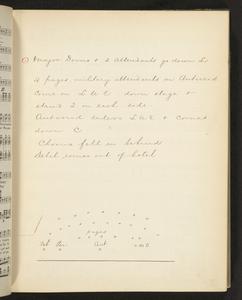 Major Domo & 2 Attendants go down L
4 pages military attendants on Antwerd
Come on L U E down stage &
stand 2 on each side.
enters L U E & comes
down C
Chorus fall in behind
comes out of hotel
pages